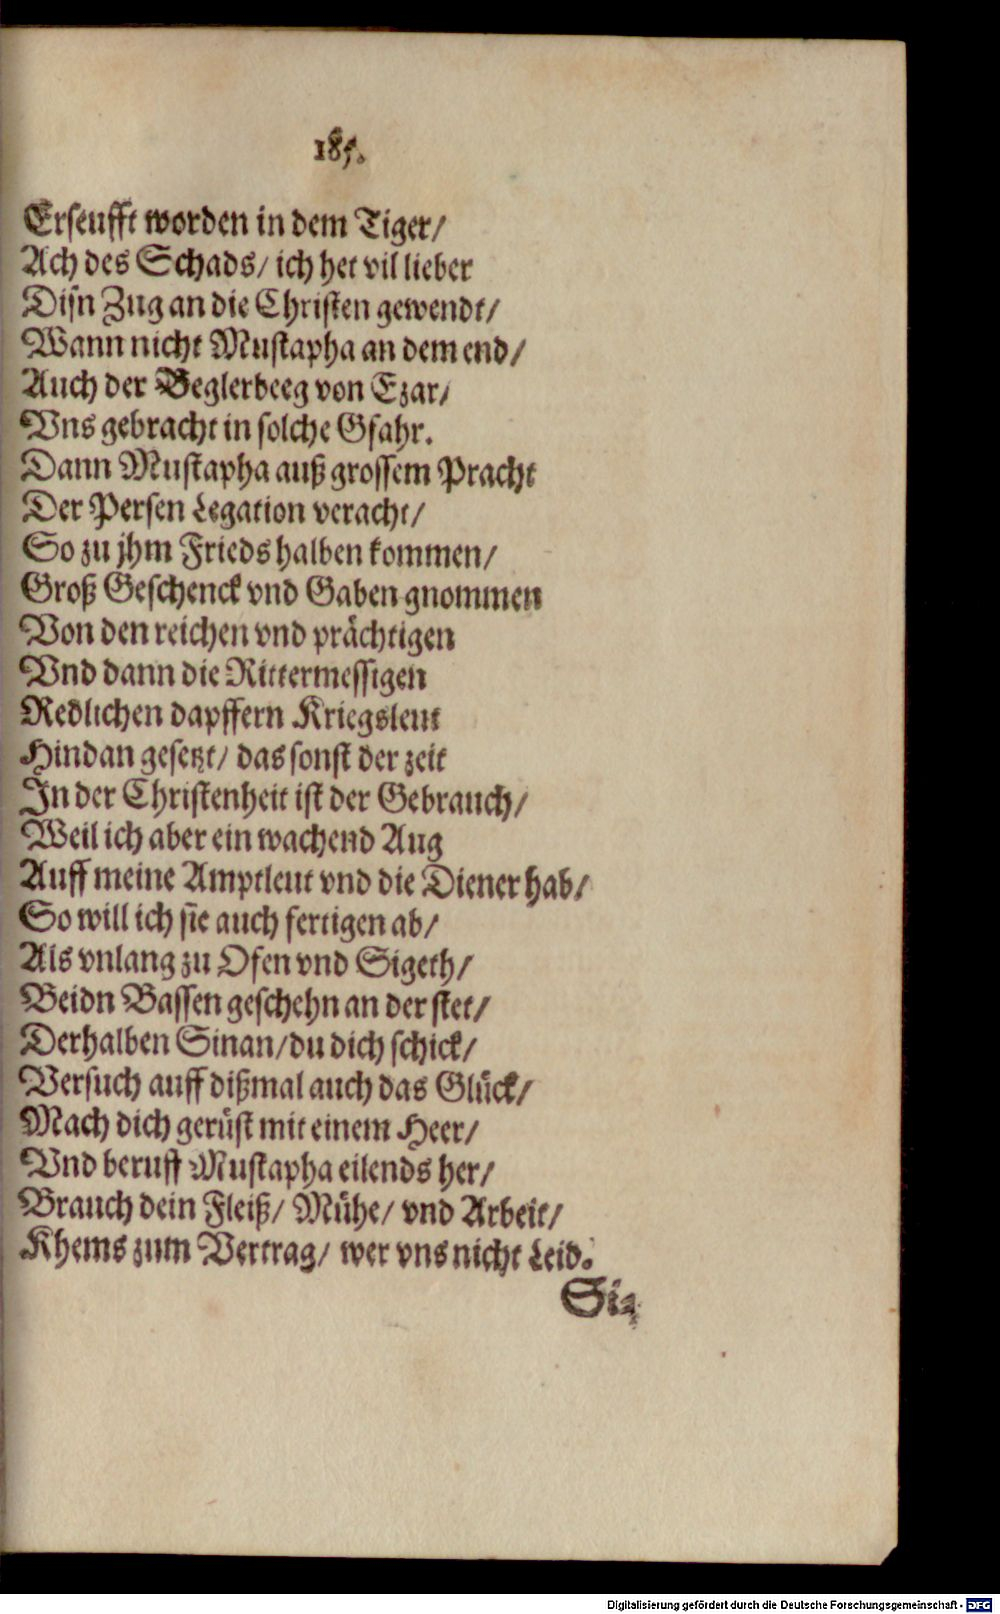 185.
Erseufft worden in dem Tiger/
Ach des Schads/ ich het vil lieber
Disn Zug an die Christen gewendt/
Wann nicht Mustapha an dem end/
Auch der Beglerbeeg von Ezar/
Vns gebracht in solche Gfahr.
Dann Mustapha auß grossem Pracht
Der Persen Legation veracht/
So zu jhm Frieds halben kommen/
Groß Geschenck vnd Gaben gnommen
Von den reichen vnd prächtigen
Vnd dann die Rittermessigen
Redlichen dapffern Kriegsleut
Hindan gesetzt/ das sonst der zeit
In der Christenheit ist der Gebrauch/
Weil ich aber ein wachend Aug
Auff meine Amptleut vnd die Diener hab/
So will ich sie auch fertigen ab/
Als vnlang zu Ofen vnd Sigeth/
Beidn Bassen geschehn an der stet/
Derhalben Sinan/ du dich schick/
Versuch auff dißmal auch das Glück/
Mach dich gerüst mit einem Heer/
Vnd beruff Mustapha eilends her/
Brauch dein Fleiß/ Mühe/ vnd Arbeit/
Khems zum Vertrag/ wer vns nicht Leid.
Sia
Digitalisierung gefördert durch die Deutsche Forschungsgemeinschaft - DFG